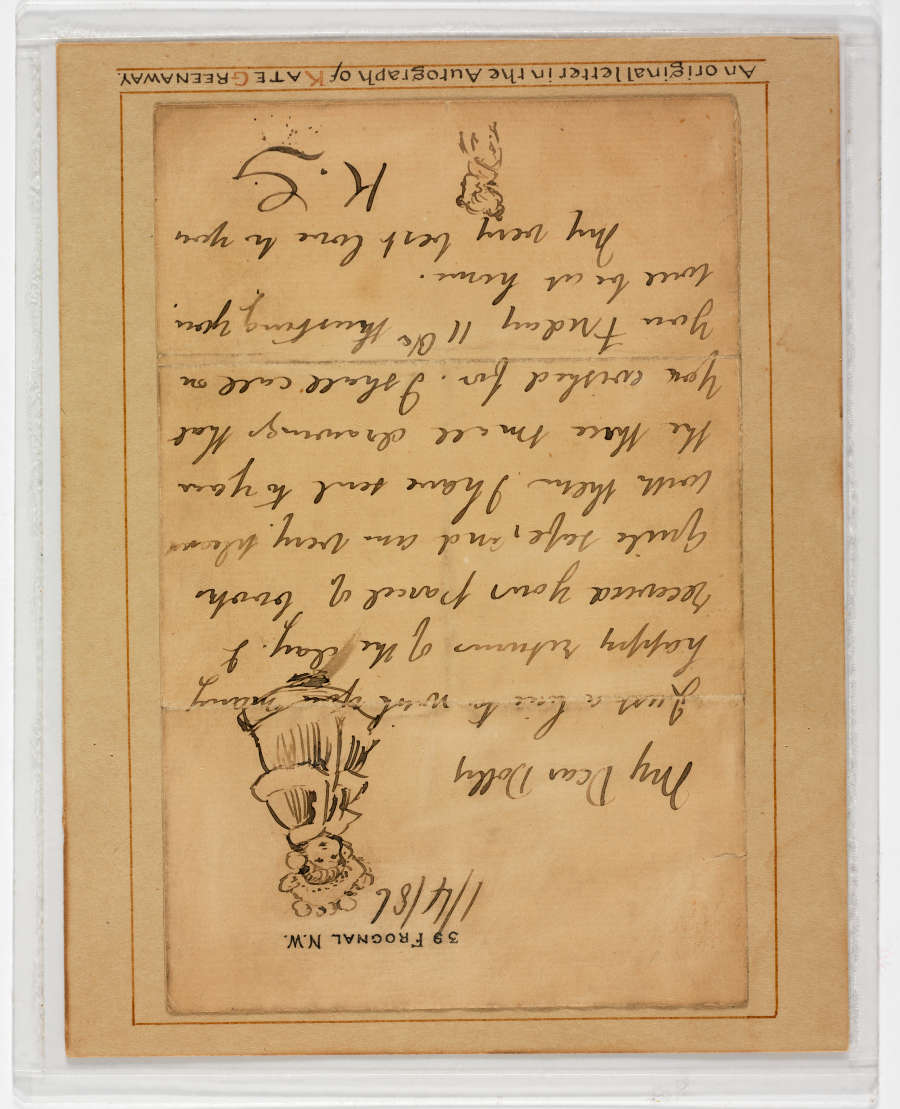 39 FROGNAL N.W.
1/4/86
My Dear Dolly
Just a line to wish you many
happy returns of the day. I
received your parcel of books
quite safe, and am very pleased
with them I have sent to you
the three small drawings that
you wished for. I shall call on
you Friday 11 Oc trusting you
will be at home.
My very best love to you
K. G
An original letter in the Autograph of KATE GREENAWAY.